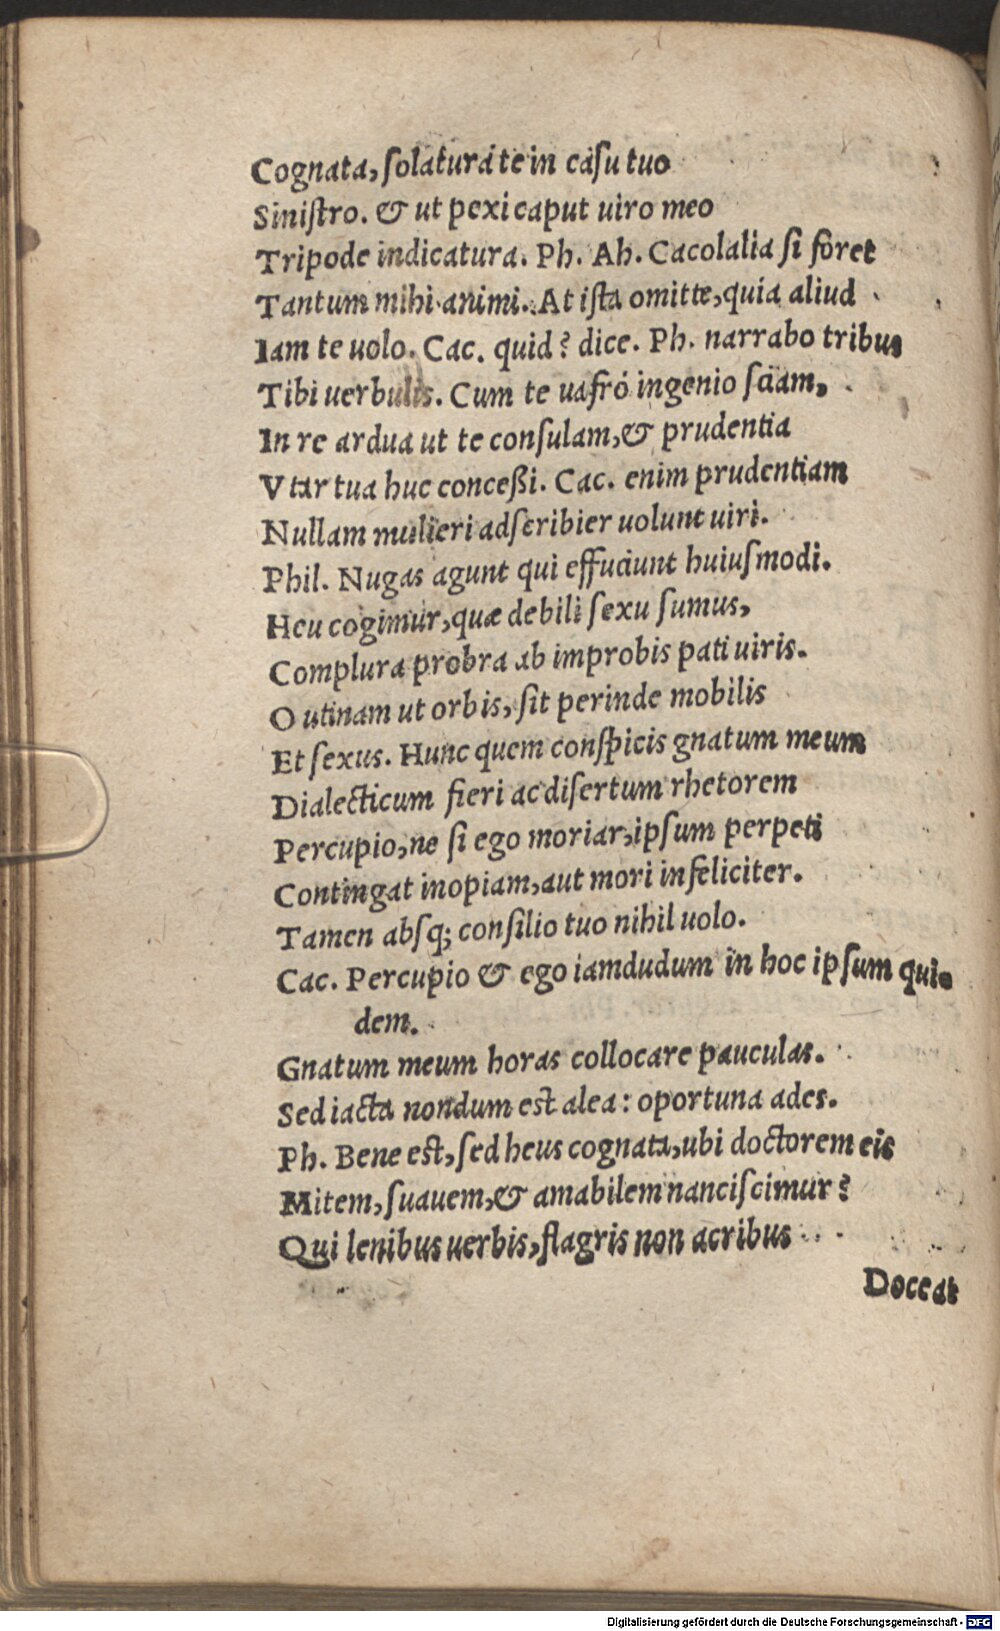 Cognata, ſolaturá te in caſu tuo
Siniſtro. & ut pexi caput uiro meo
Tripode indicatura. Ph. Ah. Cacolalia ſi foret
Tantum mihi animi. At iſta omitte, quia aliud
Iam te uolo. Cac. quid? dice. Ph. narrabo tribus
Tibi uerbulis. Cum te uafró ingenio ſciam,
In re ardua ut te conſulam, & prudentia
Vtar tua huc conceßi. Cac. enim prudentiam
Nullam mulieri adſcribier uolunt uiri.
Phil. Nugas agunt qui effuciunt huiuſmodi.
Heu cogimur, quæ debili ſexu ſumus,
Complura probra ab improbis pati uiris.
O utinam ut orbis, ſit perinde mobilis
Et ſexus. Hunc quem conſpicis gnatum meum
Dialecticum fieri ac diſertum rhetorem
Percupio, ne ſi ego moriar, ipſum perpeti
Contingat inopiam, aut mori infeliciter.
Tamen abſq; conſilio tuo nihil uolo.
Cac. Percupio & ego iamdudum in hoc ipſum qui-
dem.
Gnatum meum horas collocare pauculas.
Sed iacta nondum est alea: oportuna ades.
Ph. Bene est, ſed heus cognata, ubi doctorem eis
Mitem, ſuauem, & amabilem nanciſcimur?
Qui lenibus uerbis, flagris non acribus
Doceat
Digitalisierung gefördert durch die Deutsche Forschungsgemeinschaft - DFG